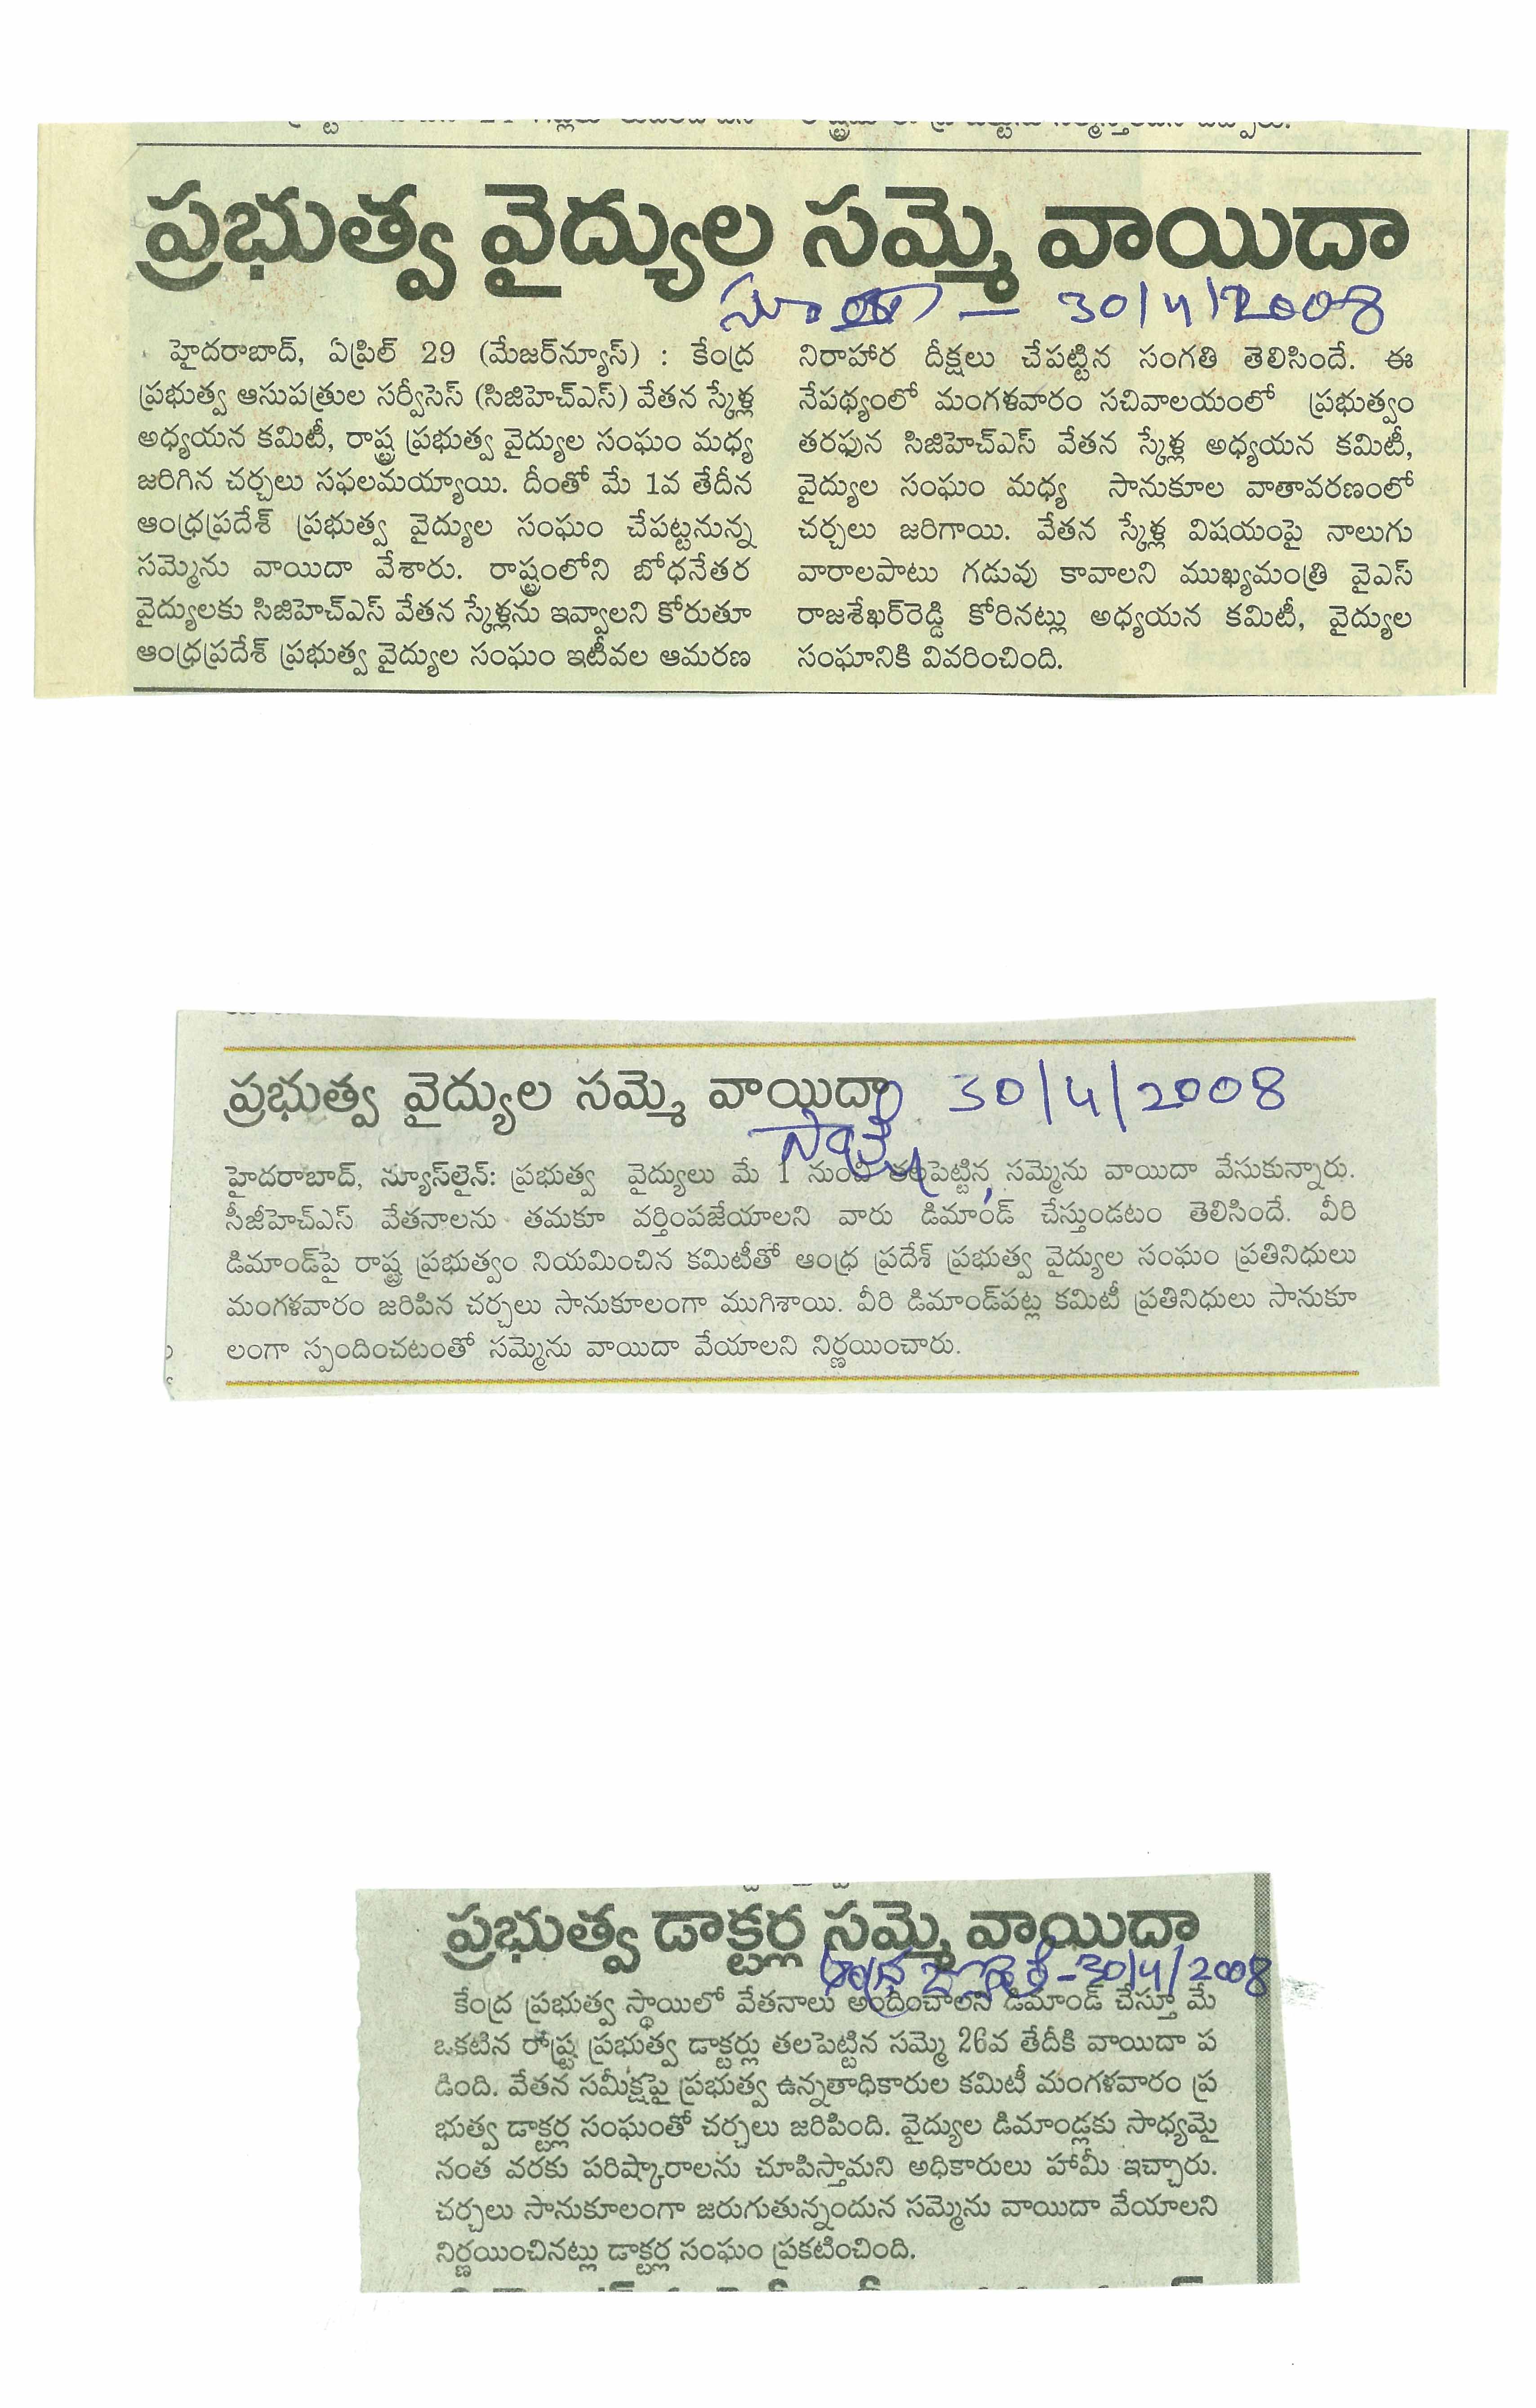 ప్రభుత్వ వైద్యుల సమ్మె వాయిదా
సూర్య – 30/4/2008
హైదరాబాద్, ఏప్రిల్ 29 (మేజర్‌న్యూస్) : కేంద్ర
ప్రభుత్వ ఆసుపత్రుల సర్వీసెస్ (సిజిహెచ్ఎస్) వేతన స్కేళ్ల
అధ్యయన కమిటీ, రాష్ట్ర ప్రభుత్వ వైద్యుల సంఘం మధ్య
జరిగిన చర్చలు సఫలమయ్యాయి. దీంతో మే 1వ తేదీన
ఆంధ్రప్రదేశ్ ప్రభుత్వ వైద్యుల సంఘం చేపట్టనున్న
సమ్మెను వాయిదా వేశారు. రాష్ట్రంలోని బోధనేతర
వైద్యులకు సిజిహెచ్ఎస్ వేతన స్కేళ్లను ఇవ్వాలని కోరుతూ
ఆంధ్రప్రదేశ్ ప్రభుత్వ వైద్యుల సంఘం ఇటీవల ఆమరణ
నిరాహార దీక్షలు చేపట్టిన సంగతి తెలిసిందే. ఈ
నేపథ్యంలో మంగళవారం సచివాలయంలో ప్రభుత్వం
తరఫున సిజిహెచ్ఎస్ వేతన స్కేళ్ల అధ్యయన కమిటీ,
వైద్యుల సంఘం మధ్య సానుకూల వాతావరణంలో
చర్చలు జరిగాయి. వేతన స్కేళ్ల విషయంపై నాలుగు
వారాలపాటు గడువు కావాలని ముఖ్యమంత్రి వైఎస్
రాజశేఖర్‌రెడ్డి కోరినట్లు అధ్యయన కమిటీ, వైద్యుల
సంఘానికి వివరించింది.
ప్రభుత్వ వైద్యుల సమ్మె వాయిదా 30/4/2008
సాక్షి
హైదరాబాద్, న్యూస్‌లైన్: ప్రభుత్వ వైద్యులు మే 1 నుంచి తలపెట్టిన సమ్మెను వాయిదా వేసుకున్నారు.
సీజీహెచ్ఎస్ వేతనాలను తమకూ వర్తింపజేయాలని వారు డిమాండ్ చేస్తుండటం తెలిసిందే. వీరి
డిమాండ్‌పై రాష్ట్ర ప్రభుత్వం నియమించిన కమిటీతో ఆంధ్ర ప్రదేశ్ ప్రభుత్వ వైద్యుల సంఘం ప్రతినిధులు
మంగళవారం జరిపిన చర్చలు సానుకూలంగా ముగిశాయి. వీరి డిమాండ్‌పట్ల కమిటీ ప్రతినిధులు సానుకూ
లంగా స్పందించటంతో సమ్మెను వాయిదా వేయాలని నిర్ణయించారు.
ప్రభుత్వ డాక్టర్ల సమ్మె వాయిదా
ఆంధ్ర జ్యోతి - 30/4/2008
కేంద్ర ప్రభుత్వ స్థాయిలో వేతనాలు అందించాలని డిమాండ్ చేస్తూ మే
ఒకటిన రాష్ట్ర ప్రభుత్వ డాక్టర్లు తలపెట్టిన సమ్మె 26వ తేదీకి వాయిదా ప
డింది. వేతన సమీక్షపై ప్రభుత్వ ఉన్నతాధికారుల కమిటీ మంగళవారం ప్ర
భుత్వ డాక్టర్ల సంఘంతో చర్చలు జరిపింది. వైద్యుల డిమాండ్లకు సాధ్యమై
నంత వరకు పరిష్కారాలను చూపిస్తామని అధికారులు హామీ ఇచ్చారు.
చర్చలు సానుకూలంగా జరుగుతున్నందున సమ్మెను వాయిదా వేయాలని
నిర్ణయించినట్లు డాక్టర్ల సంఘం ప్రకటించింది.